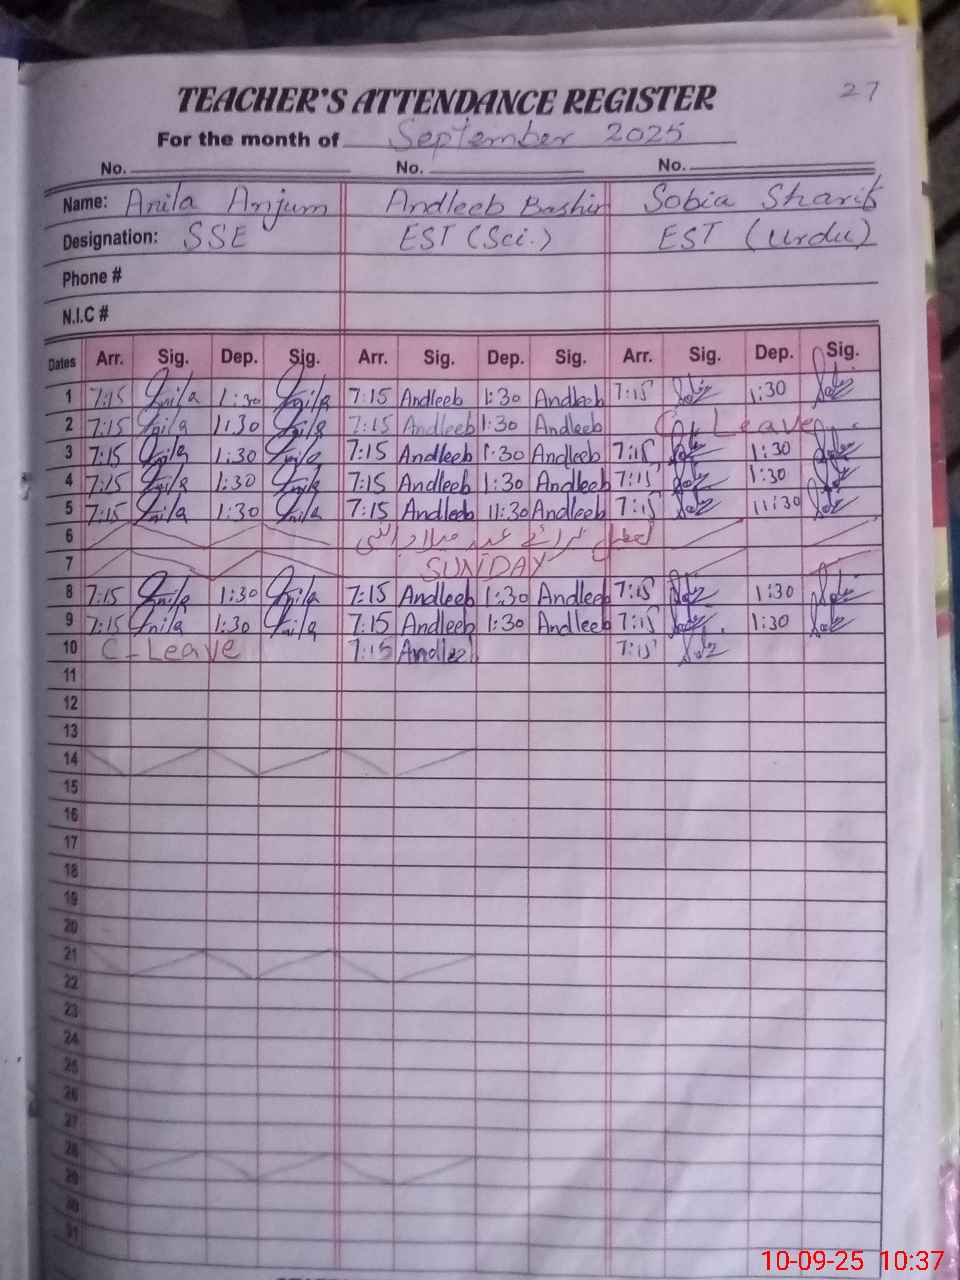 27
TEACHER'S ATTENDANCE REGISTER
For the month of September 2025
No. No. No.
Name: Anila Anjum Andleeb Bashir Sobia Sharif
Designation: SSE EST (Sci.) EST (Urdu)
Phone #
N.I.C #
Dates Arr. Sig. Dep. Sig. Arr. Sig. Dep. Sig. Arr. Sig. Dep. Sig.
1 7:15 Anila 1:30 Anila 7:15 Andleeb 1:30 Andleeb 7:15 1:30
2 7:15 Anila 1:30 Anila 7:15 Andleeb 1:30 Andleeb C- Leave
3 7:15 Anila 1:30 Anila 7:15 Andleeb 1:30 Andleeb 7:15 1:30
4 7:15 Anila 1:30 Anila 7:15 Andleeb 1:30 Andleeb 7:15 1:30
5 7:15 Anila 1:30 Anila 7:15 Andleeb 11:30 Andleeb 7:15 11:30
6 عید میلاد النبی
7 SUNDAY
8 7:15 Anila 1:30 Anila 7:15 Andleeb 1:30 Andleeb 7:15 1:30
9 7:15 Anila 1:30 Anila 7:15 Andleeb 1:30 Andleeb 7:15 1:30
10 C-Leave 7:15 Andleeb 7:15
11
12
13
14
15
16
17
18
19
20
21
22
23
24
25
26
27
28
29
30
31
10-09-25 10:37